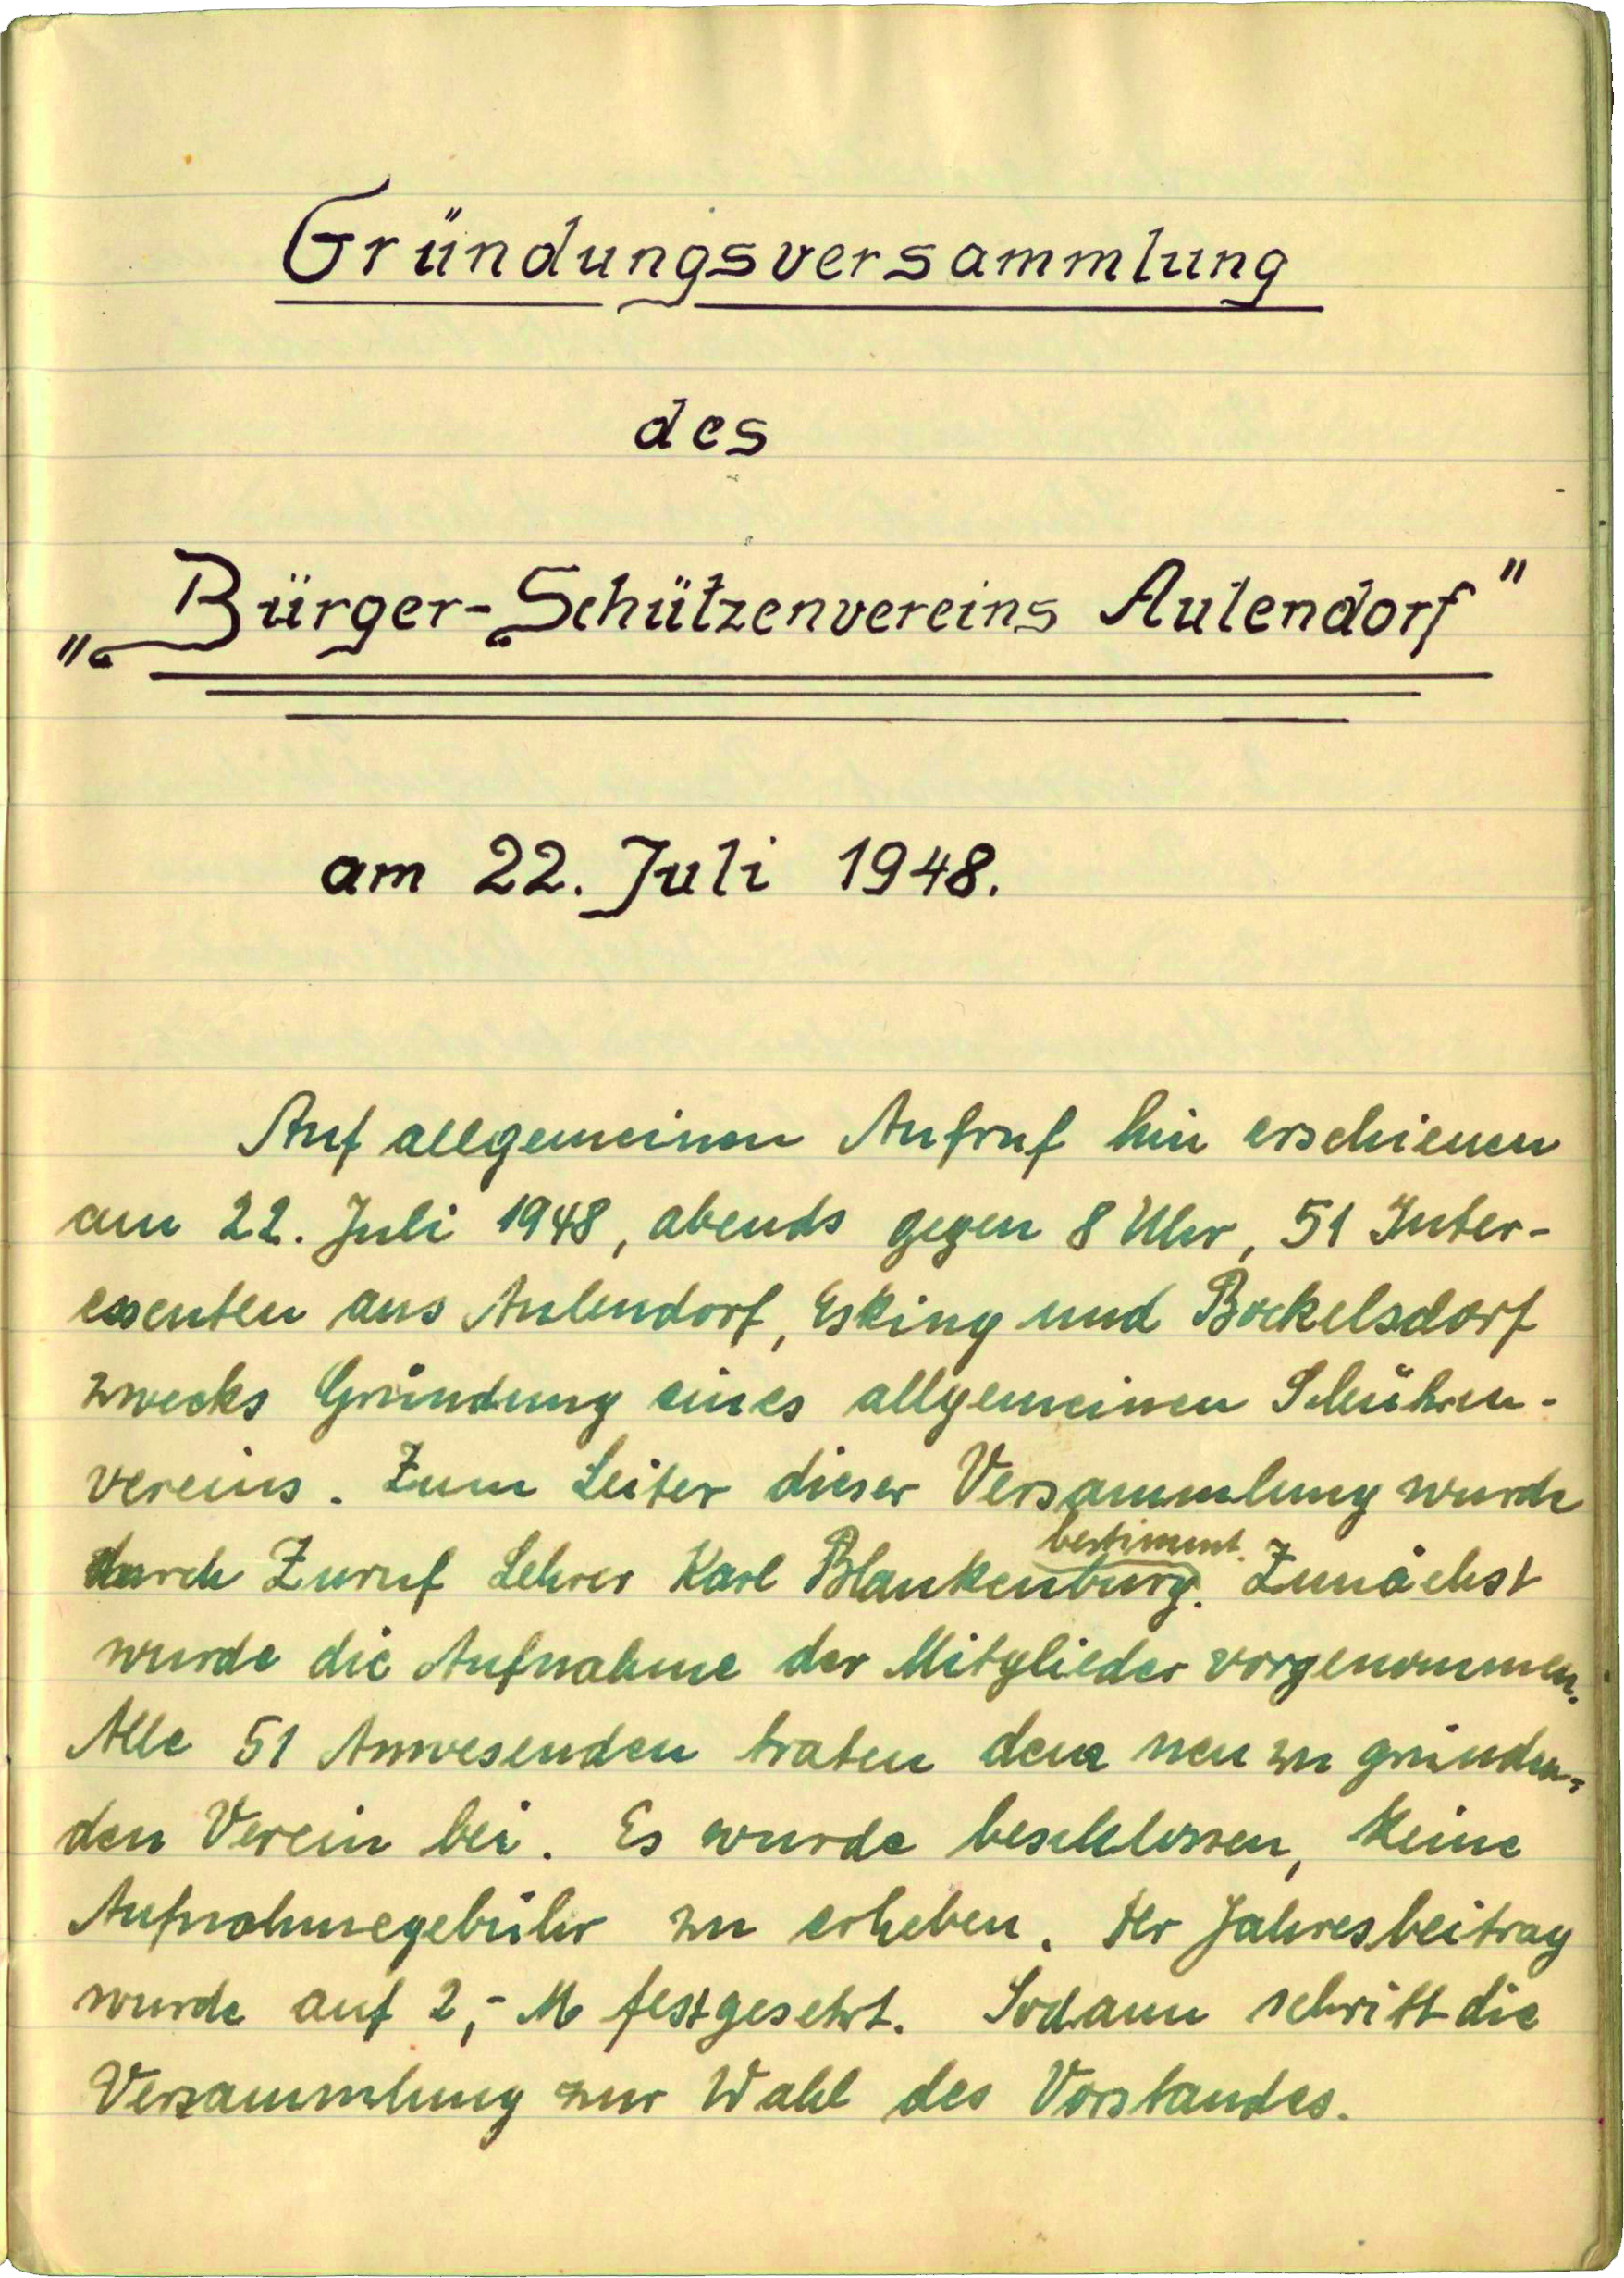 Gründungsversammlung
des
„Bürger-Schützenvereins Aulendorf"
am 22. Juli 1948.
Auf allgemeinen Aufruf hin erschienen
am 22. Juli 1948, abends gegen 8 Uhr, 51 Inter-
essenten aus Aulendorf, Esking und Bockelsdorf
zwecks Gründung eines allgemeinen Schützen-
vereins. Zum Leiter dieser Versammlung wurde
bestimmt.
durch Zuruf Lehrer Karl Blankenburg. Zunächst
wurde die Aufnahme der Mitglieder vorgenommen.
Alle 51 Anwesenden traten dem neu zu gründen-
den Verein bei. Es wurde beschlossen, keine
Aufnahmegebühr zu erheben. Der Jahresbeitrag
wurde auf 2,- M festgesetzt. Sodann schritt die
Versammlung zur Wahl des Vorstandes.